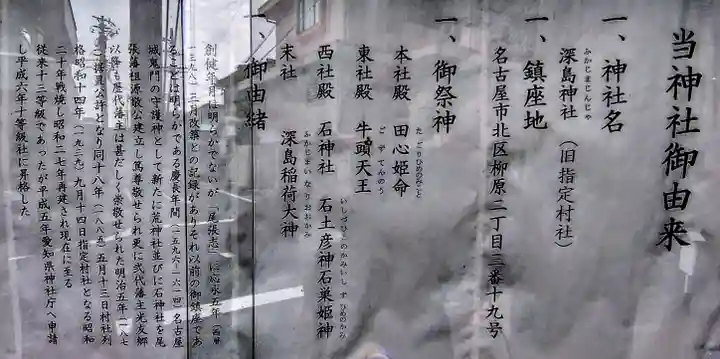 当神社御由来
一、神社名
深島神社（旧指定村社）
ふかじまじんじゃ
一、鎮座地
名古屋市北区柳原二丁目三番十九号
一、御祭神
本社殿 田心姫命
たごりひめのみこと
東社殿 牛頭天王
ごずてんのう
西社殿 石神社 石土彦神石巣姫神
いしづちひこのかみいしずひめのかみ
末社 深島稲荷大神
ふかじまいなりおおかみ
一、御由緒
創健年月は明らかでないが「尾張志」に応永五年（西暦
一三九八）三月改築との記録がありそれ以前の御鎮座であ
ることは明らかである慶長年間（一五九六ー一六一四）名古屋
城鬼門の守護神として新たに荒神社並びに石神社を尾
張藩祖源敬公建立し篤尊敬せられ更に弐代藩主光友郷
以降も歴代藩主は甚だしく崇敬せられた明治五年（一八七
二）据置公許となり同十八年（一八八五）五月十三日村社列
格昭和十四年（一九三九）九月十四日指定村社となる昭和
二十年戦焼し昭和二七年再建され現在に至る
従来十三等級であったが平成五年愛知県神社庁へ申請
し平成六年十等級社に昇格した